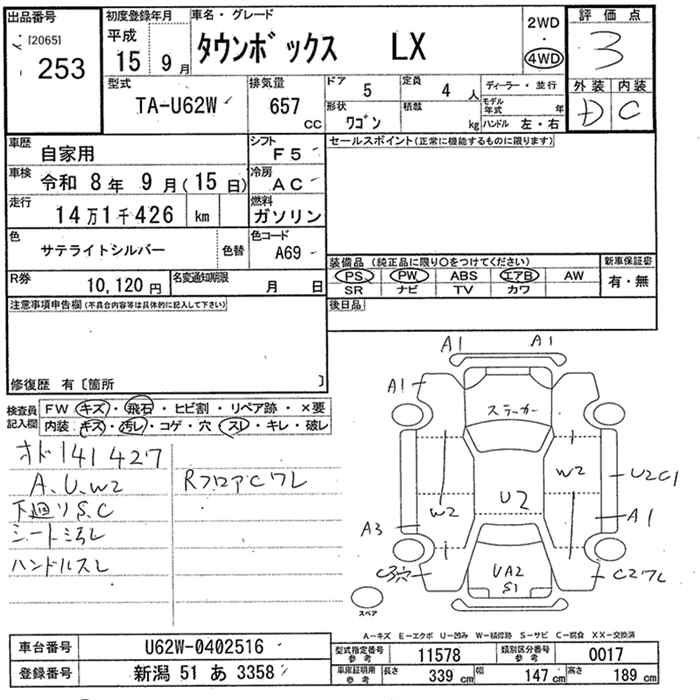 出品番号
[2065]
253
初度登録年月
平成
15年 9月
車名・グレード
タウンボックス LX
2WD
・
4WD
評価点
3
外装 内装
D C
型式
TA-U62W
排気量
657
CC
ドア
5
定員
4 人
形状
ワゴン
積載
kg
ディーラー・並行
モデル年式 年
ハンドル 左・右
車歴
自家用
シフト
F5
車検
令和 8年 9月(15日)
冷房
AC
走行
14万1千426 km
燃料
ガソリン
色
サテライトシルバー
色替
色コード
A69
R券
10,120円
名変通知期限
月 日
セールスポイント(正常に機能するものに限ります)
装備品 (純正品に限り○をつけてください)
新車保証書
PS PW ABS エアB AW
SR ナビ TV カワ
有・無
注意事項申告欄(不具合内容等は具体的に記入して下さい)
後日品
修復歴 有〔箇所 〕
検査員
記入欄
FW キズ・飛石・ヒビ割・リペア跡・×要
内装・キズ・汚レ・コゲ・穴・スレ・キレ・破レ
オド141427
A.U.W2
下廻りS.C
シート汚レ
ハンドルスレ
RフロアCワレ
A1 A1
A1
ステッカー
W2
U2C1
U2
W2
A3
A1
C3穴
UA2
S1
C2ワレ
スペア
A-キズ E-エクボ U-凹み W-補修跡 S-サビ C-腐食 XX-交換済
車台番号
U62W-0402516
登録番号
新潟 51 あ 3358
型式指定番号
参考
11578
類別区分番号
参考
0017
車庫証明用
参考
長さ 339 cm
幅 147 cm
高さ 189 cm